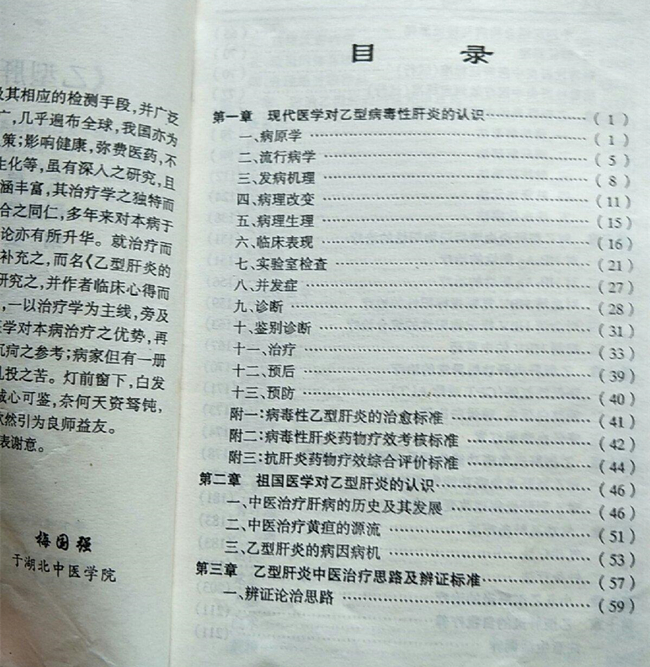 及其相应的检测手段，并广泛
广，几乎遍布全球，我国亦为
策；影响健康，弥费医药，不
生化等，虽有深人之研究，且
涵丰富，其治疗学之独特而
合之同仁，多年来对本病于
论亦有所升华。就治疗而
补充之，而名《乙型肝炎的
研究之，并作者临床心得而
，一以治疗学为主线，旁及
医学对本病治疗之优势，再
沉疴之参考；病家但有一册
乱投之苦。灯前窗下，白发
诚心可鉴，奈何天资驽钝，
欣然引为良师益友。
表谢意。
梅国强
于湖北中医学院
目 录
第一章 现代医学对乙型病毒性肝炎的认识……（1）
一、病原学……（1）
二、流行病学……（5）
三、发病机理……（8）
四、病理改变……（11）
五、病理生理……（15）
六、临床表现……（16）
七、实验室检查……（21）
八、并发症……（27）
九、诊断……（28）
十、鉴别诊断……（31）
十一、治疗……（33）
十二、预后……（39）
十三、预防……（40）
附一：病毒性乙型肝炎的治愈标准……（41）
附二：病毒性肝炎药物疗效考核标准……（42）
附三：抗肝炎药物疗效综合评价标准……（44）
第二章 祖国医学对乙型肝炎的认识……（46）
一、中医治疗肝病的历史及其发展……（46）
二、中医治疗黄疸的源流……（51）
三、乙型肝炎的病因病机……（53）
第三章 乙型肝炎中医治疗思路及辨证标准……（57）
一、辨证论治思路……（59）